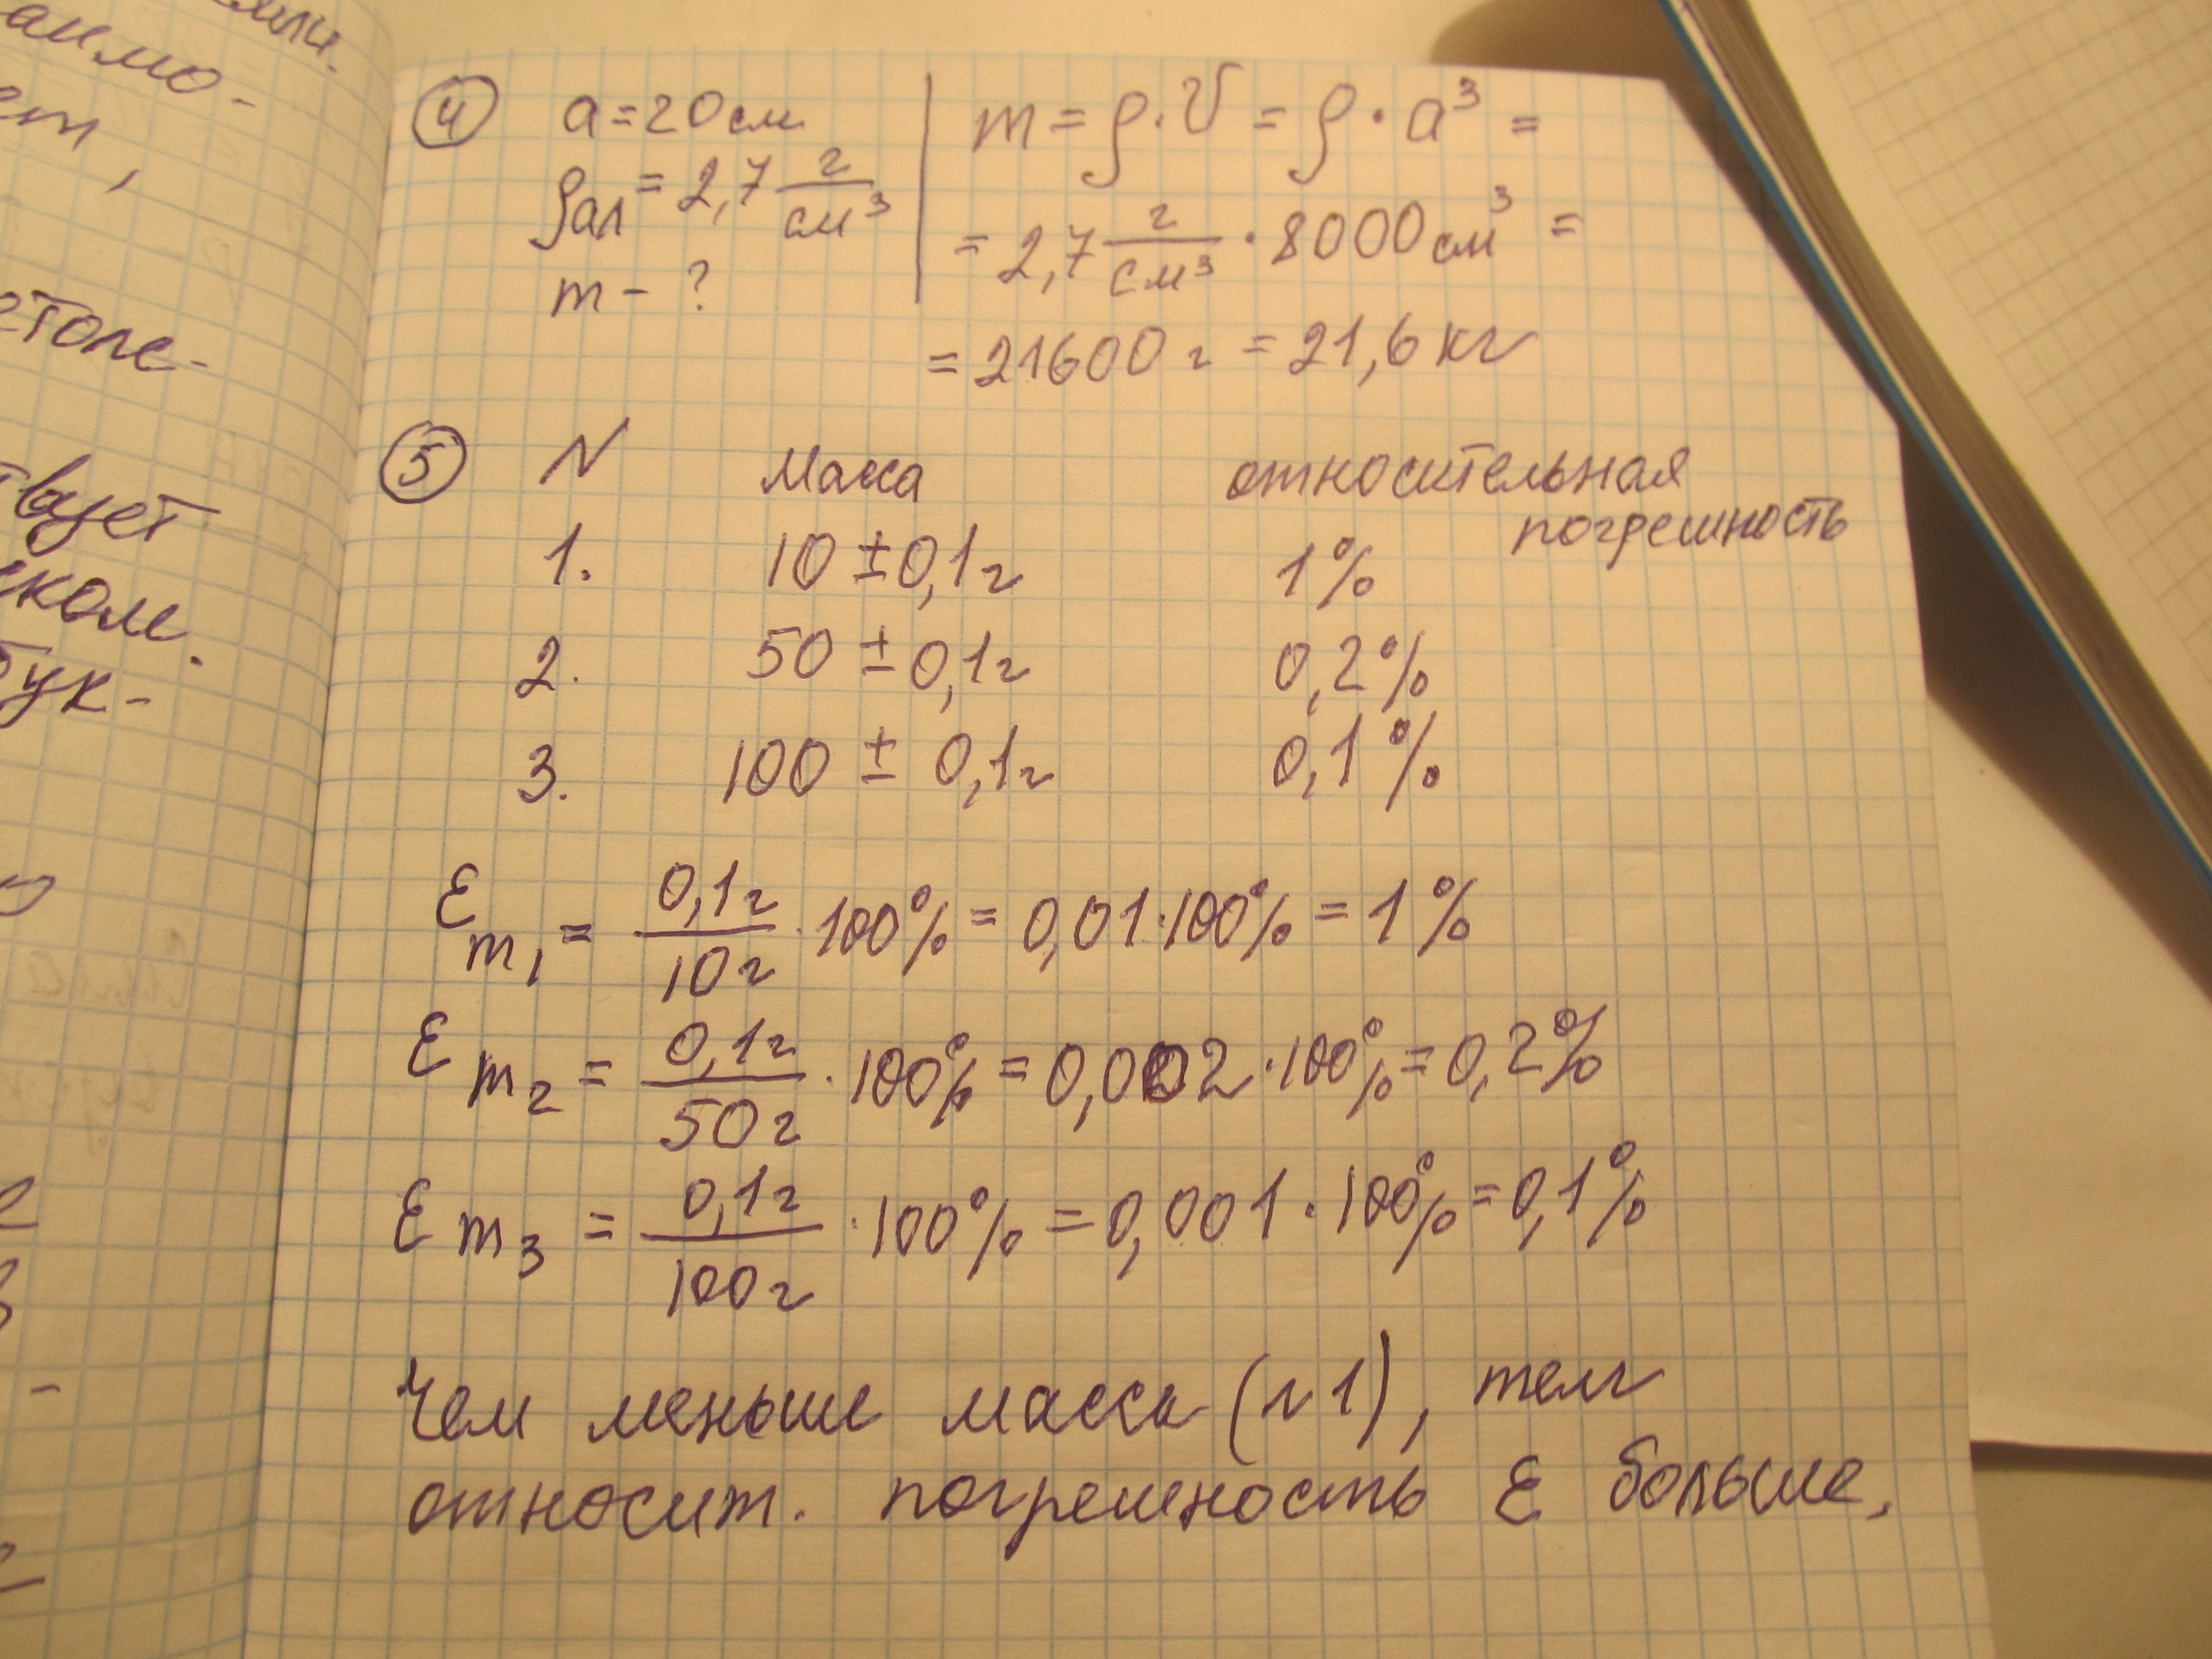 или.
аимо-
ет,
етоле-
твует
ском.
бук-
④ a = 20 см | m = ρ·V = ρ·a³ =
ρал = 2,7 г/см³ | = 2,7 г/см³ · 8000 см³ =
m - ?
= 21600 г = 21,6 кг
⑤ N Масса относительная
погрешность
1. 10 ± 0,1 г 1%
2. 50 ± 0,1 г 0,2%
3. 100 ± 0,1 г 0,1%
ε m₁ = 0,1г/10г · 100% = 0,01·100% = 1%
ε m₂ = 0,1г/50г · 100% = 0,002·100% = 0,2%
ε m₃ = 0,1г/100г · 100% = 0,001·100% = 0,1%
Чем меньше масса (N1), тем
относит. погрешность ε больше,